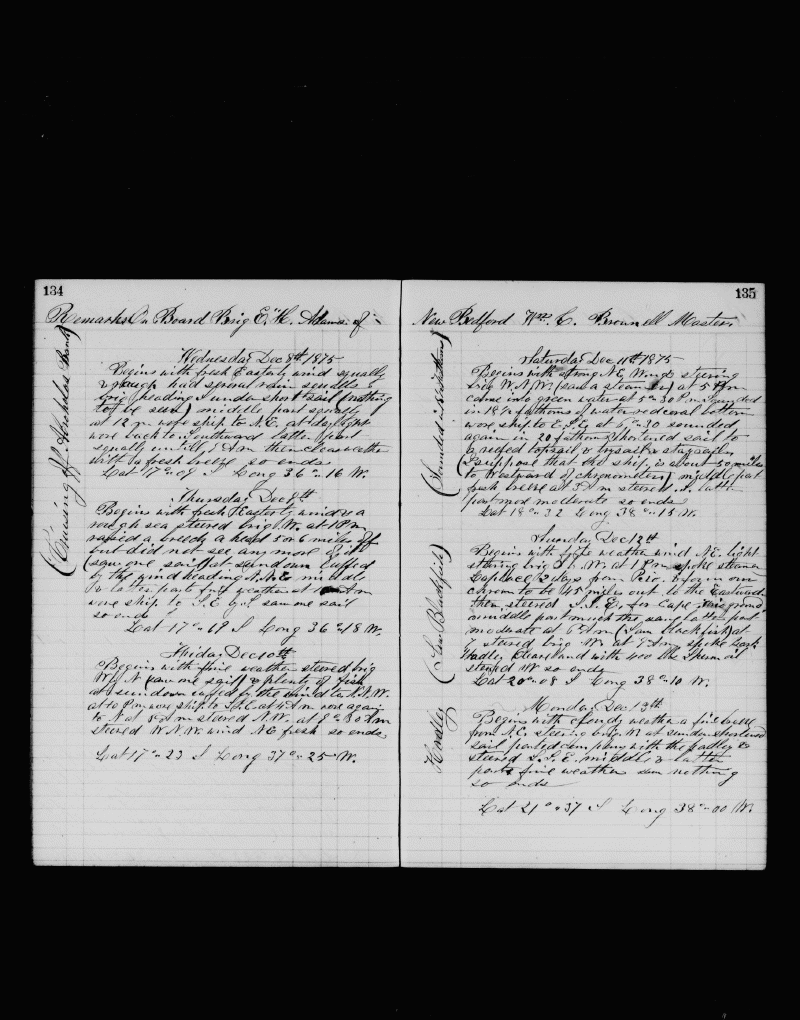 134
Remarks On Board Brig E. H. Adams of
(Cruising off Abrolhos Banks)
Wednesday Dec 8th 1875
Begins with fresh Easterly wind squally
& rough had several rain squalls
brig heading under short sail (nothing
to be seen) middle part squally
at 12 m wore ship to N.E. at daylight
wore back to Southward latter part
squally untill 9 Am then clear weather
with a fresh breeze so ends
Lat 17 " 09 S Long 36 " 16 W.
Thursday Dec 9th
Begins with fresh Easterly wind & a
rough sea steered brig W. at 1 Pm
raised a breach a head 5 or 6 miles off
but did not see any more of it
(saw one sail) at sundown luffed
by the wind heading N.N.E middle
& latter parts fine weather at Am
wore ship to S.E saw one sail
so ends
Lat 17 " 19 S Long 36 " 18 W.
Friday Dec 10th
Begins with fine weather steered brig
W by N (saw one sail) & plenty of fish
at sundown luffed by the wind to N.N.W.
at 10 Pm wore ship to S.E. at 4 Am wore again
to N at 5 Am steered N.W. at 8 " 30 Am
steered W.N.W. wind NE fresh so ends
Lat 17 " 23 S Long 37 " 25 W.
135
New Bedford Wm. C. Brownell Master
(Sounded in 18 fathoms)
Saturday Dec 11th 1875
Begins with strong N.E. Wind steering
brig W.N.W. (saw a steamer) at 5 Pm
came into green water at 5 " 30 Pm sounded
in 18 fathoms of water red coral bottom
wore ship to E.S.E at 6 " 30 sounded
again in 20 fathoms shortened sail to
a reefed topsail & trysail & staysail
(I suppose that the ship is about 50 miles
to Westward of chronometer) middle part
fresh breeze at 3 Am steered latter
part mod moderate so ends
Lat 18 " 32 Long 38 " 15 W.
(Saw Blackfish)
Sunday Dec 12th
Begins with fine weather wind NE. light
steering brig S. W. at 1 Pm spoke steamer
2 days from Rio
chrom to be 45 miles out to the Eastward
then steered S.S.E. for Cape
middle part much the same latter part
moderate at 6 Am (Saw blackfish) at
7 steered brig W. at 9 Am spoke bark
Hadley with 400 bbls Sperm oil
steered W so ends
Lat 20 " 08 S Long 38 " 10 W.
Hadley
Monday Dec 13th
Begins with cloudy weather a fine breeze
from N.E. steering brig W at sundown shortened
sail parted company with the Hadley &
steered S.S.E. middle & latter
parts fine weather saw nothing
so ends
Lat 21 " 37 S Long 38 " 00 W.